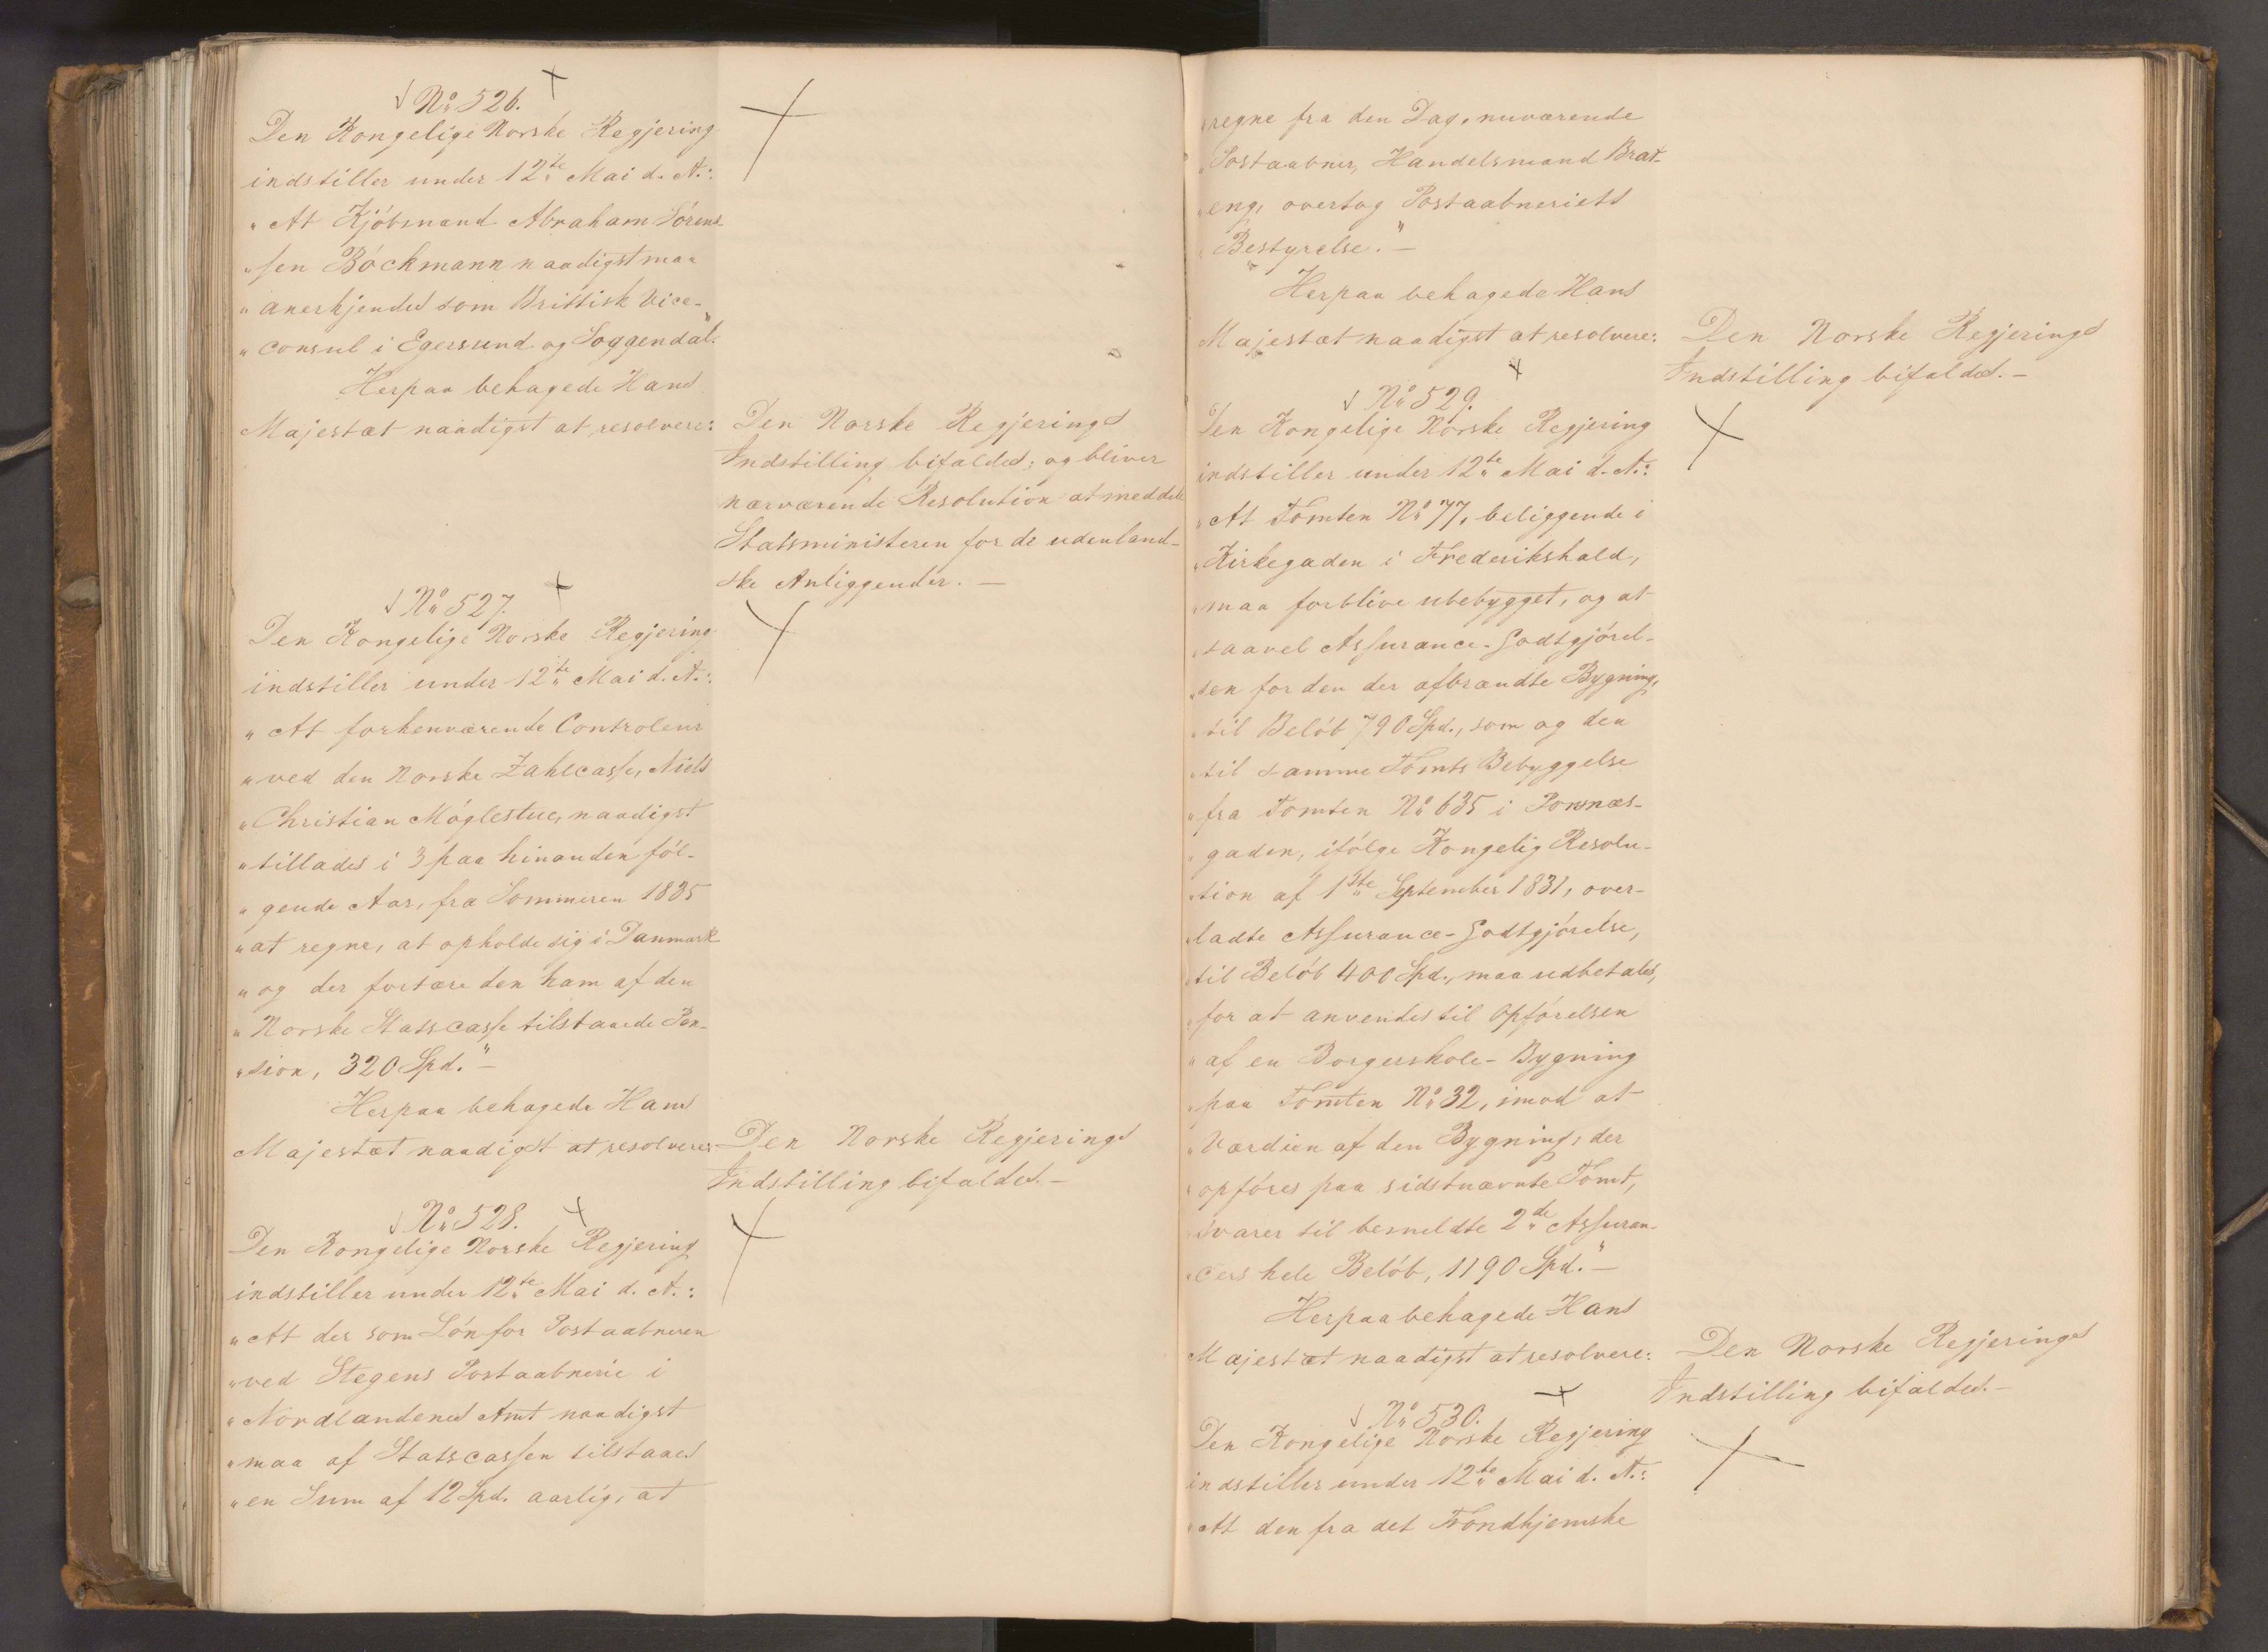 No 526.
Den Kongelige Norske Regjering
indstiller under 12te Mai d. A.:
"At Kjöbmand Abraham Sörens-
"sen Böckmann naadigst maa
"anerkjendes som Brittisk Vice-
"consul i Egersund og Soggendal."
Herpaa behagede Hans
Majestæt naadigst at resolvere:
Den Norske Regjerings
Indstilling bifaldes; og bliver
nærværende Resolution at meddele
Statsministeren for de udenland-
ske Anliggender. —
No 527.
Den Kongelige Norske Regjering
indstiller under 12te Mai d. A.:
"At forhenværende Controleur
"ved den Norske Zahlcasse, Niels
"Christian Möglestue, naadigst
"tillades i 3 paa hinanden föl-
"gende Aar, fra Sommeren 1835
"at regne, at opholde sig i Danmark
"og der fortære den ham af den
"Norske Statscasse tilstaaede Pen-
"sion, 320 Spd." —
Herpaa behagede Hans
Majestæt naadigst at resolvere:
Den Norske Regjerings
Indstilling bifaldes. —
No 528.
Den Kongelige Norske Regjering
indstiller under 12te Mai d. A.:
"At der som Lön for Postaabneren
"ved Stegens Postaabnerie i
"Nordlandenes Amt naadigst
"maa af Statscassen tilstaaes
"en Sum af 12 Spd. aarlig, at
"regne fra den Dag, nuværende
"Postaabner, Handelsmand Brat-
"eng, overtog Postaabneriets
"Bestyrelse." —
Herpaa behagede Hans
Majestæt naadigst at resolvere:
Den Norske Regjerings
Indstilling bifaldes. —
No 529.
Den Kongelige Norske Regjering
indstiller under 12te Mai d. A.:
"At Tomten No 77, beliggende i
"Kirkegaden i Frederikshald,
"maa forblive ubebygget, og at
"saavel Assurance-Godtgjörel-
"sen for den der afbrændte Bygning,
"til Belöb 790 Spd., som og den
"til samme Tomts Bebyggelse
"fra Tomten No 635 i
"gaden, ifölge Kongelig Resolu-
"tion af 1ste September 1831, over-
"ladte Assurance-Godtgjörelse,
"til Belöb 400 Spd., maa udbetales,
"for at anvendes til Opförelsen
"af en Borgerskole-Bygning
"paa Tomten No 32, imod at
"Værdien af den Bygning, der
"opföres paa sidstnævnte Tomt,
"svarer til bemeldte 2de Assuran-
"cers hele Belöb, 1190 Spd." —
Herpaa behagede Hans
Majestæt naadigst at resolvere:
Den Norske Regjerings
Indstilling bifaldes. —
No 530.
Den Kongelige Norske Regjering
indstiller under 12te Mai d. A.:
"At den fra det Trondhjemske